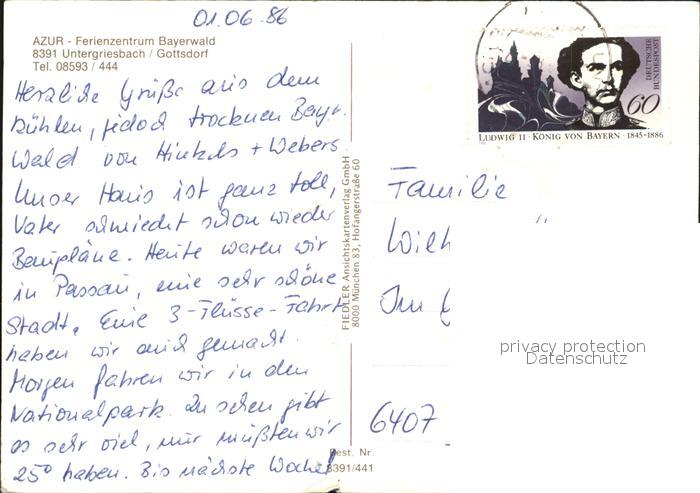 01.06.86
AZUR - Ferienzentrum Bayerwald
8391 Untergriesbach / Gottsdorf
Tel. 08593 / 444
Herzliche Grüße aus dem
kühlen, jedoch trockenen Bayr.
Wald von Hinkels + Webers
Unser Haus ist ganz toll,
Vater schmiedet schon wieder
Baupläne. Heute waren wir
in Passau, eine sehr schöne
Stadt. Eine 3-Flüsse-Fahrt
haben wir auch gemacht.
Morgen fahren wir in den
Nationalpark. Zu sehen gibt
es sehr viel, nur müßten wir
25° haben. Bis nächste Woche!
FIEDLER Ansichtskartenverlag GmbH
8000 München 83, Hofangerstraße 60
Best. Nr.
8391/441
DEUTSCHE
BUNDESPOST
60
LUDWIG II · KÖNIG VON BAYERN · 1845-1886
Familie
Wilh
Im
6407
privacy protection
Datenschutz